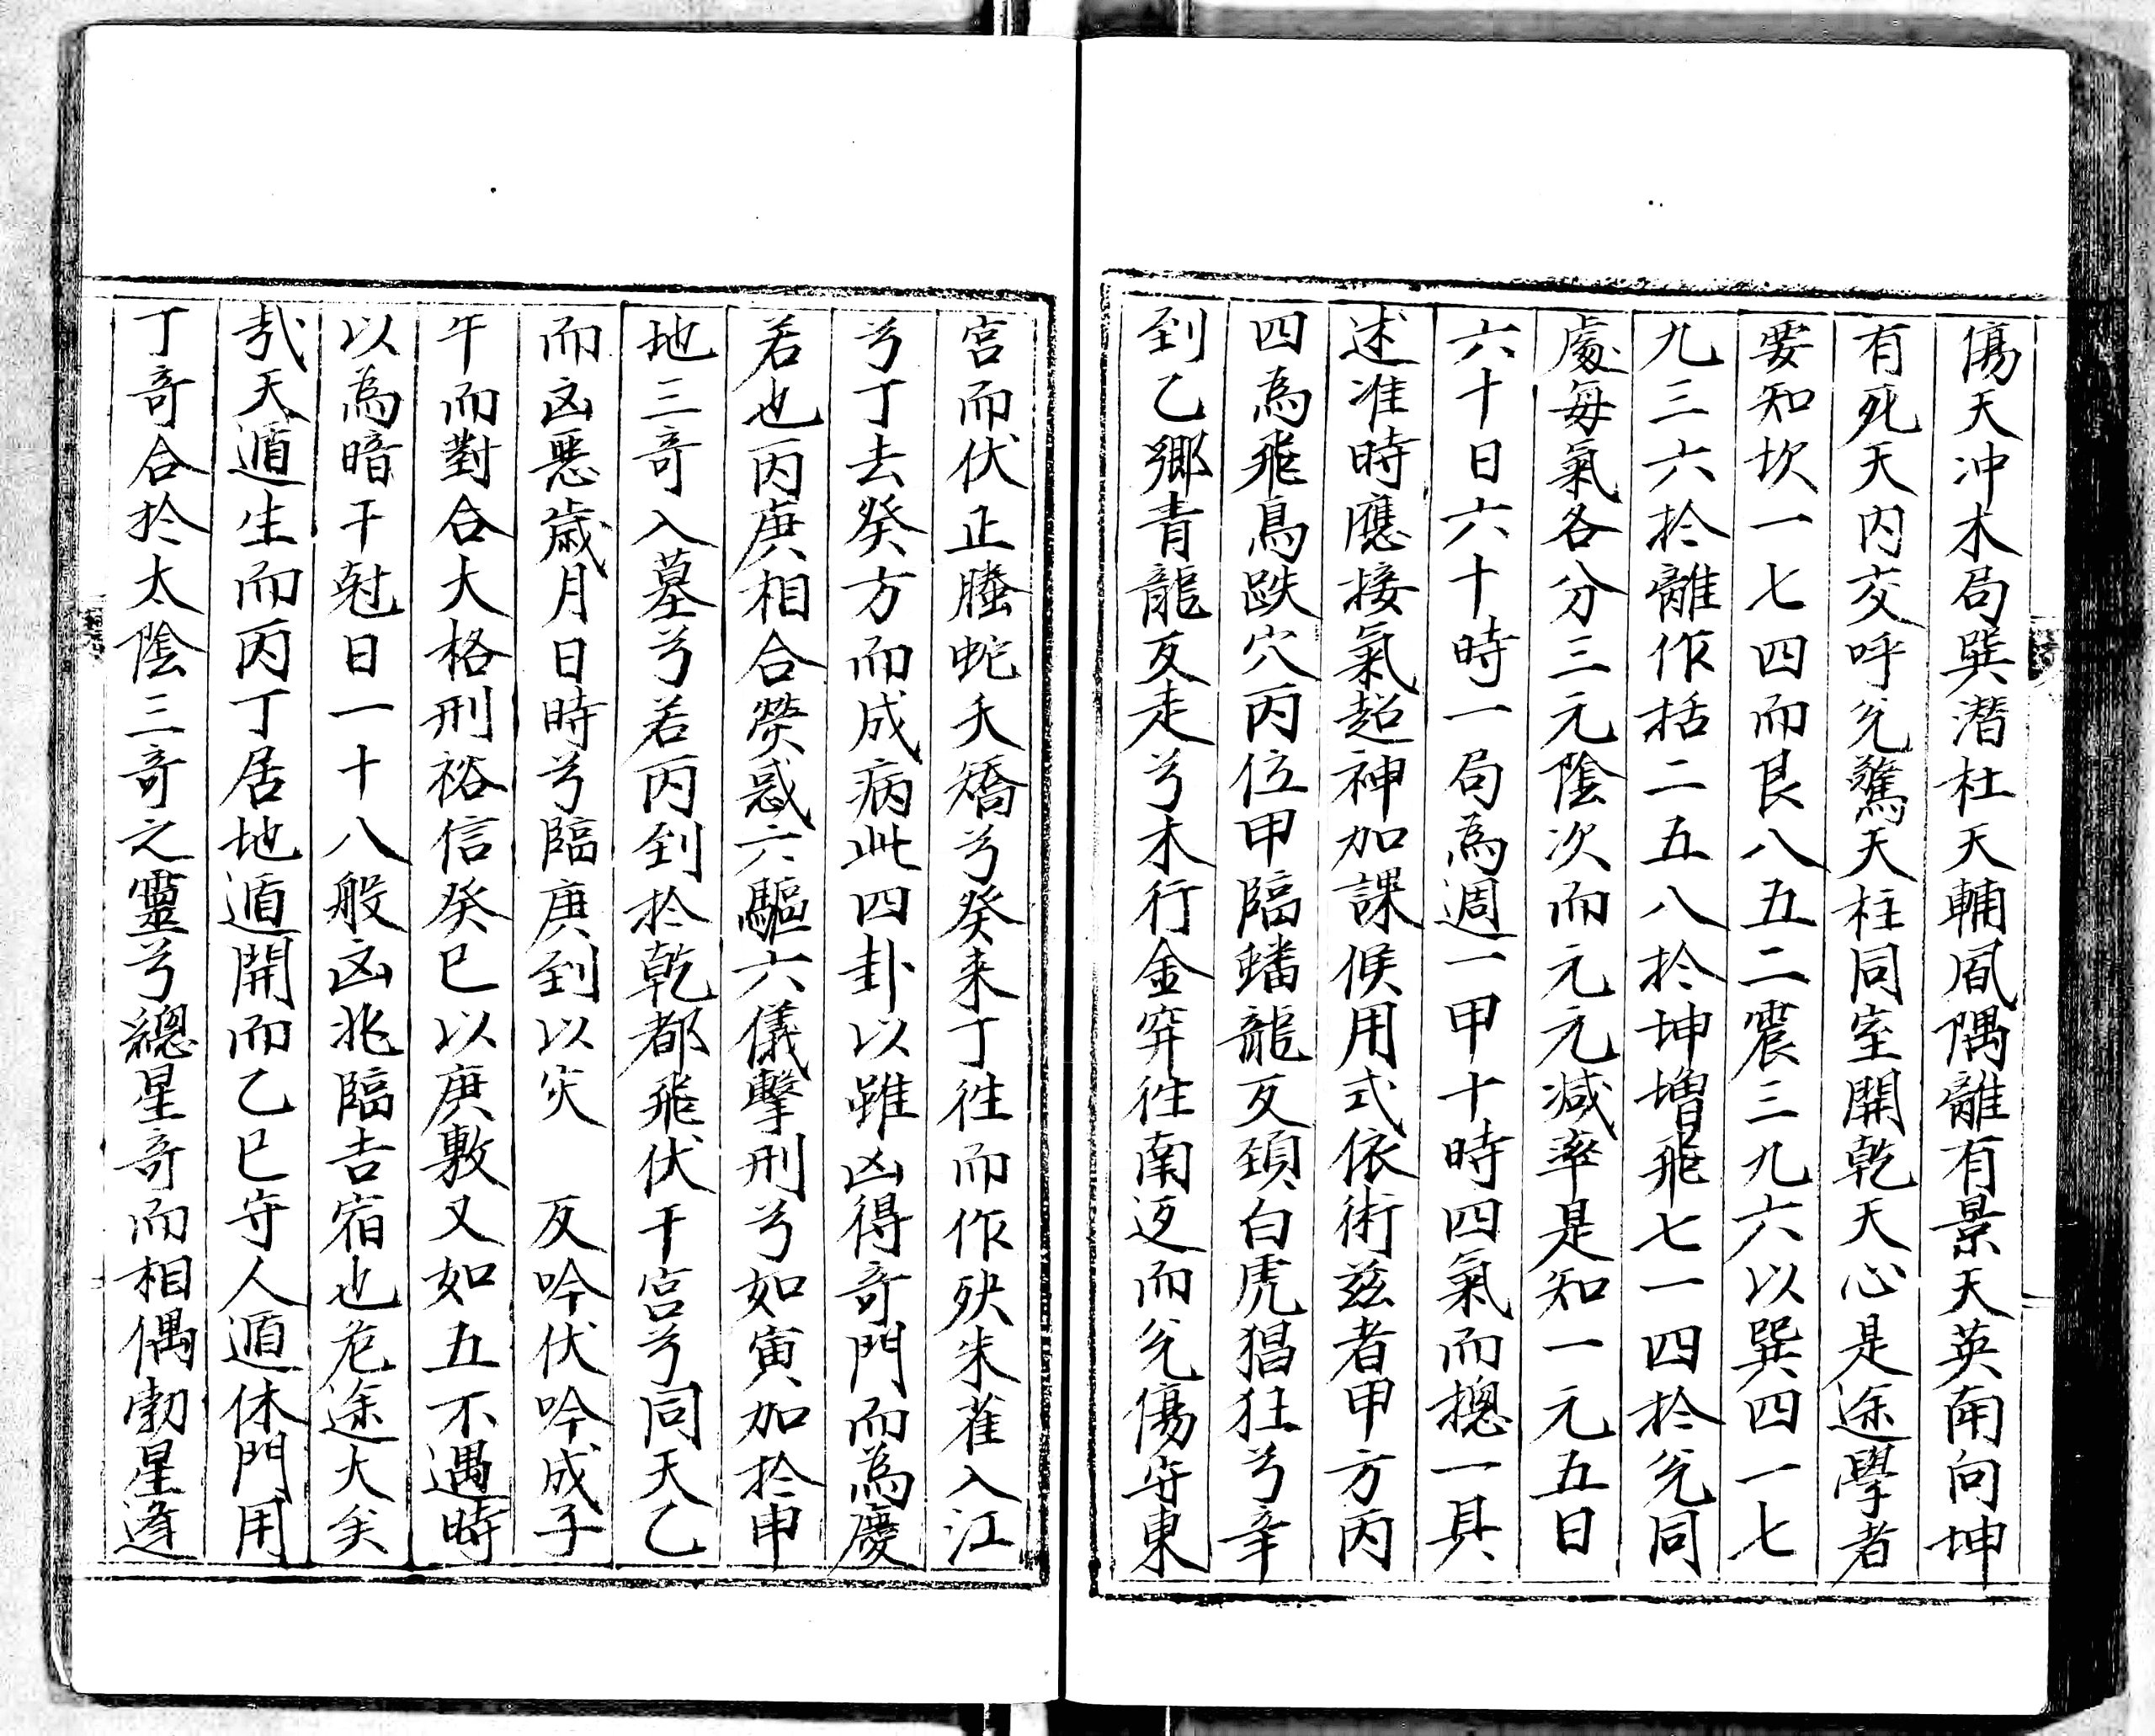 傷天冲木局巽潛杜天輔風隅離有景天英南向坤
有死天内交呼兌驚天柱同室開乾天心是途學者
要知坎一七四而艮八五二震三九六以巽四一七
九三六於離作括二五八於坤增飛七一四於兌同
處每氣各分三元陰次而元元減率是知一元五日
六十日六十時一局為週一甲十時四氣而摠一具
述准時應接氣超神加課候用式依術兹者甲方丙
四為飛鳥跌穴丙位甲臨蟠龍反頸白虎猖狂兮辛
到乙鄉青龍反走兮木行金穽往南返而兌傷守東
宮而伏正螣蛇夭矯兮癸来丁往而作殃朱雀入江
兮丁去癸方而成病此四卦以雖凶得奇門而為慶
若也丙庚相合熒惑六驅六儀擊刑兮如寅加於申
地三奇入墓兮若丙到於乾都飛伏干宮兮同天乙
而凶惡歲月日時兮臨庚到以灾 反吟伏吟成子
午而對合大格刑裕信癸已以庚敷又如五不遇時
以為暗干尅日一十八般凶兆臨吉宿也危途大矣
哉天遁生而丙丁居地遁開而乙巳守人遁休門用
丁奇合於太陰三奇之靈兮總星奇而相偶勃星逢